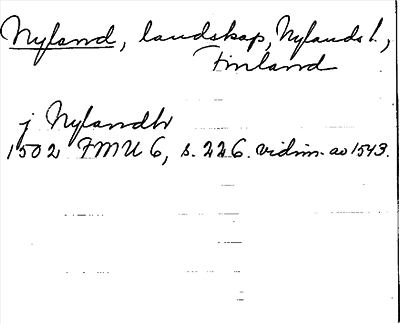 Nyland, landskap, Nylands l.,
Finland
j Nylandh
1502 FMU 6, s. 226. vidim. ao 1543.